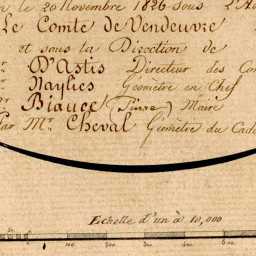 le 20 Novembre 1826 Sous L'A
Le Comte de Vendeuvre
et sous la Direction de
D'Astis Directeur des Con
Naylies Géometre en Chef
Biauce (Pierre) Maire
Par Mr. Cheval Géometre du Cada
Echelle d'un à 10,000